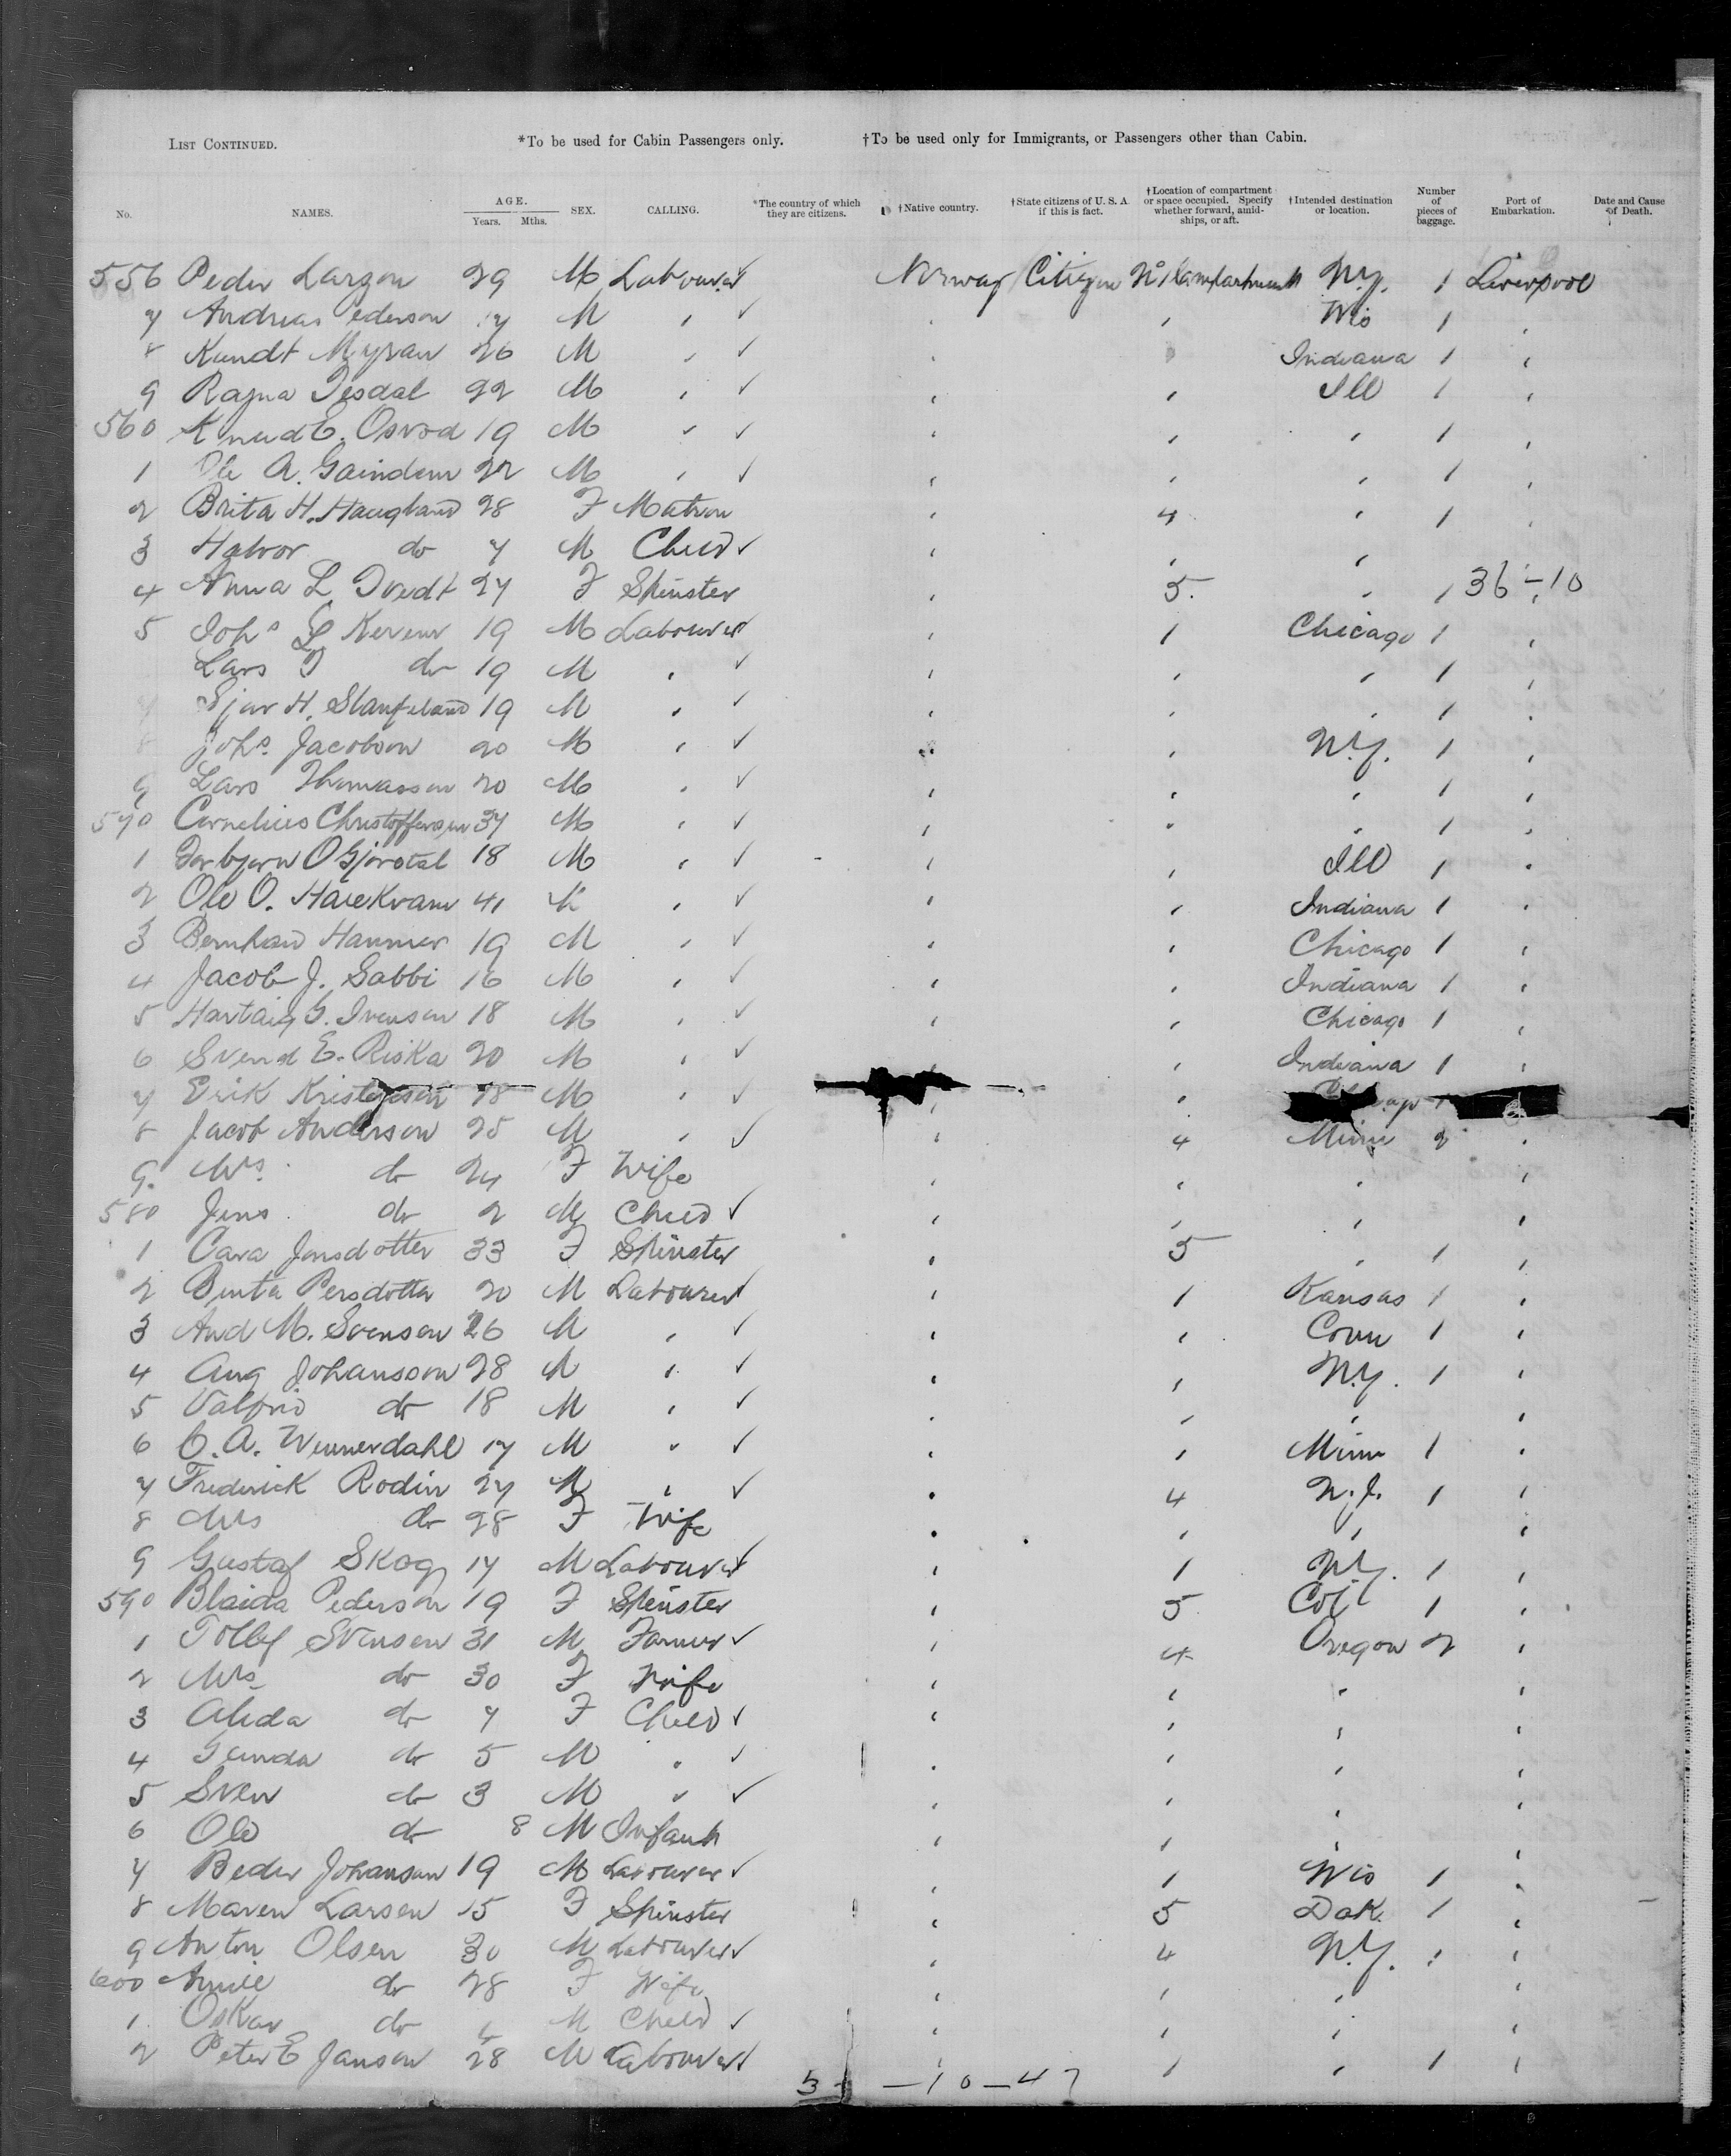 LIST CONTINUED. *To be used for Cabin Passengers only. †To be used only for Immigrants, or Passengers other than Cabin.
No. NAMES. AGE. Years. Mths. SEX. CALLING. *The country of which they are citizens. †Native country. †State citizens of U. S. A. if this is fact. †Location of compartment or space occupied. Specify whether forward, amidships, or aft. †Intended destination or location. Number of pieces of baggage. Port of Embarkation. Date and Cause of Death.
556 Peder Largon 29 M Labourer ✓ Norway Citizen No 1 Compartment N.Y. 1 Liverpool
7 Andreas Pederson 17 M " ✓ " " Wis 1 "
8 Kundt Myran 26 M " ✓ " Indiana 1 "
9 Ragna Tesdal 22 M " ✓ " " Ill 1 "
560 Knud E. Osvod 19 M " ✓ " " " 1 "
1 Ole A. 22 M " ✓ " " " 1 "
2 Brita H. Haugland 28 F Matron " 4 " 1 "
3 Halvor do 7 M Child ✓ " " "
4 Anna L. Tvedt 27 F Spinster " 5 " 1 36-10
5 Johs L 19 M Labourer ✓ " 1 Chicago 1 "
Lars T do 19 M " ✓ " " " 1 "
7 H. 19 M " ✓ " " " 1 "
8 Johs. Jacobson 20 M " ✓ " " N.Y. 1 "
9 Lars Thomasson 20 M " ✓ " " " 1 "
570 Cornelius Christofferson 37 M " ✓ " " " 1 "
1 Torbjorn O 18 M " ✓ " " Ill 1 "
2 Ole O. Haukvam 41 M " ✓ " " Indiana 1 "
3 Bernhard Hammer 19 M " ✓ " " Chicago 1 "
4 Jacob J. Gabbi 16 M " ✓ " " Indiana 1 "
5 Hartvig G. Ivenson 18 M " ✓ " " Chicago 1 "
6 Svend E. Riska 20 M " ✓ " " Indiana 1 "
7 Erik 28 M " ✓ " "
8 Jacob Anderson 25 M " ✓ " 4 Minn 2 "
9. Mrs. do 24 F Wife " " " "
580 Jens do 2 M Child ✓ " " " "
1 Cara Jonsdotter 33 F Spinster " 5 " 1 "
2 Persdotter 20 M Labourer ✓ " 1 Kansas 1 "
3 And M. Svenson 26 M " ✓ " " Conn 1 "
4 Aug Johansson 28 M " ✓ " " N.Y. 1 "
5 Valfrid do 18 M " ✓ " " " "
6 C. A. Wennerdahl 17 M " ✓ " " Minn 1 "
7 Frederick Rodin 27 M " ✓ " 4 N.J. 1 "
8 Mrs do 28 F Wife " " " "
9 Gustaf Skog 17 M Labourer ✓ " 1 N.Y. 1 "
590 Blaida Pederson 19 F Spinster " 5 Col 1 "
1 Tollef Svensen 31 M Farmer ✓ " 4 Oregon 2 "
2 Mrs do 30 F Wife " " " "
3 Alida do 7 F Child ✓ " " " "
4 Gunda do 5 M " ✓ " " " "
5 Sven do 3 M " ✓ " " " "
6 Ole do 8 M Infant " " " "
7 Peder Johanson 19 M Labourer ✓ " 1 Wis 1 "
8 Maren Larsen 15 F Spinster " 5 Dak. 1 "
9 Anton Olsen 30 M Labourer ✓ " 4 N.Y. "
600 do 28 F Wife " " " "
1 Oskar do 4 M Child ✓ " " " "
2 Peter E Janson 28 M Labourer ✓ " 1 " 1 "
—10—47